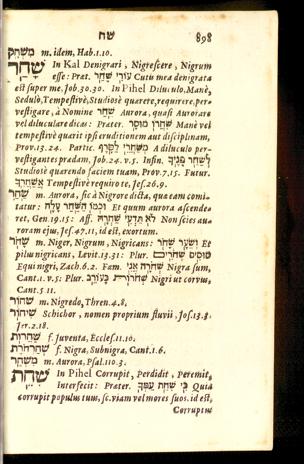 שח 898
מִשְׂחָק m. idem, Hab. 1. 10.
שָׁחַר In Kal Denigrari, Nigrescere, Nigrum
esse: Præt. עוֹרִי שָׁחַר Cutis mea denigrata
est super me. Job. 30. 30. In Pihel Diluculo, Manè,
Sedulò, Tempestivè, Studiosè quærere, requirere, per-
vestigare, à Nomine שַׁחַר Aurora, quasi Auroriare
vel diluculare dicas: Præter. שִׁחֲרוֹ מוּסָר Manè vel
tempestivè quærit ipsi eruditionem aut disciplinam,
Prov. 13. 24. Partic. מְשַׁחֲרֵי לַטָּרֶף A diluculo per-
vestigantes prædam, Job. 24. v. 5. Infin. לְשַׁחֵר פָּנֶיךָ
Studiosè quærendo faciem tuam, Prov. 7. 15. Futur.
אֲשַׁחֲרֶךָּ Tempestivè requiro te, Jes. 26. 9.
שַׁחַר m. Aurora, sic à Nigrore dicta, quæ eam comi-
tatur: וּכְמוֹ הַשַּׁחַר עָלָה Et quum aurora ascende-
ret, Gen. 19. 15: Aff. לֹא תֵדְעִי שַׁחְרָהּ Non scies au-
roram ejus, Jes. 47. 11, id est, exortum.
שָׁחֹר m. Niger, Nigrum, Nigricans: וְשֵׂעָר שָׁחֹר Et
pilus nigricans, Levit. 13. 31: Plur. סוּסִים שְׁחֹרִים
Equi nigri, Zach. 6. 2. Fœm. שְׁחוֹרָה אֲנִי Nigra sum,
Cant. 1. v. 5: Plur. שְׁחֹרוֹת כָּעוֹרֵב Nigri ut corvus,
Cant. 5. 11.
שְׁחוֹר m. Nigredo, Thren. 4. 8.
שִׁיחוֹר Schichor, nomen proprium fluvii, Jos. 13. 3.
Jer. 2. 18.
שַׁחֲרוּת f. Juventa, Eccles. 11. 10.
שְׁחַרְחֹרֶת f. Nigra, Subnigra, Cant. 1. 6.
מִשְׁחָר m. Aurora, Psal. 110. 3.
שָׁחַת In Pihel Corrupit, Perdidit, Peremit,
Interfecit: Præter. כִּי שִׁחֵת עַמְּךָ Quia
corrupit populus tuus, sc. viam vel mores suos. id est,
Corruptus